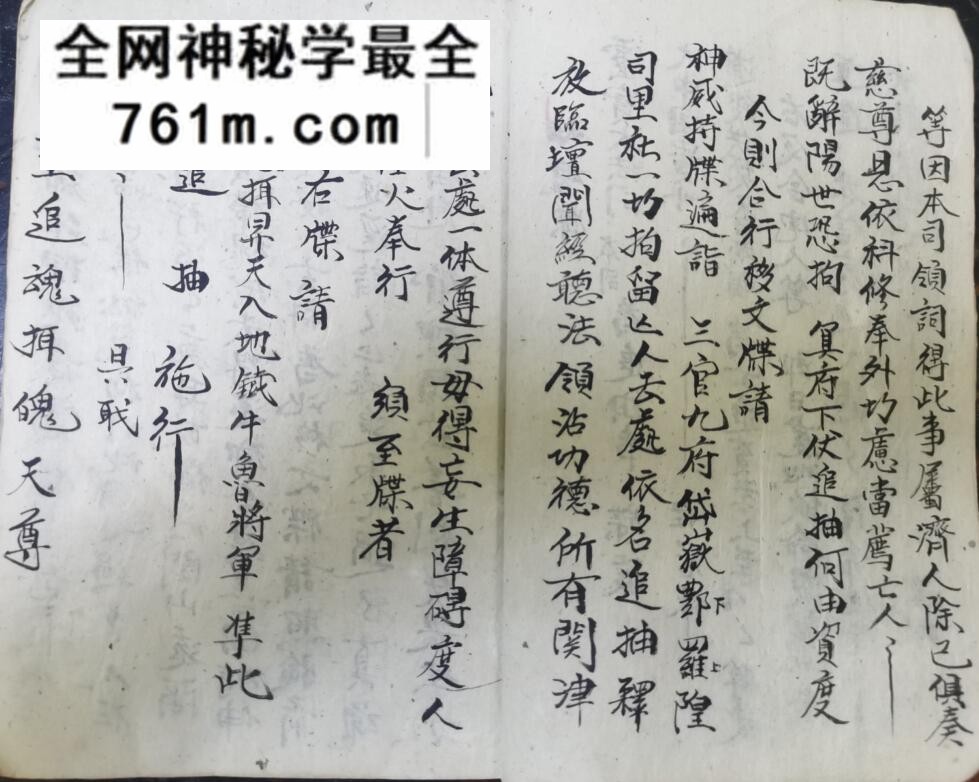 全网神秘学最全
761m.com
等因本司領詞得此事屬濟人除已俱奏
慈尊恩依科修奉外切慮當薦亡人
既辭陽世恐拘 冥府下伏追抽何由資度
今則合行移文牒請
神威持牒遍詣 三官九府岱嶽酆下羅上隍
司里社一切拘留亡人去處依名追抽釋
放臨壇聞經聽法領沾功德所有関津
處一体遵行毋得妄生障碍度人
火奉行 須至牒者
右牒 請
揖昇天入地鐵牛魯將軍 準此
追 抽 施行
具職
追魂揖魄天尊